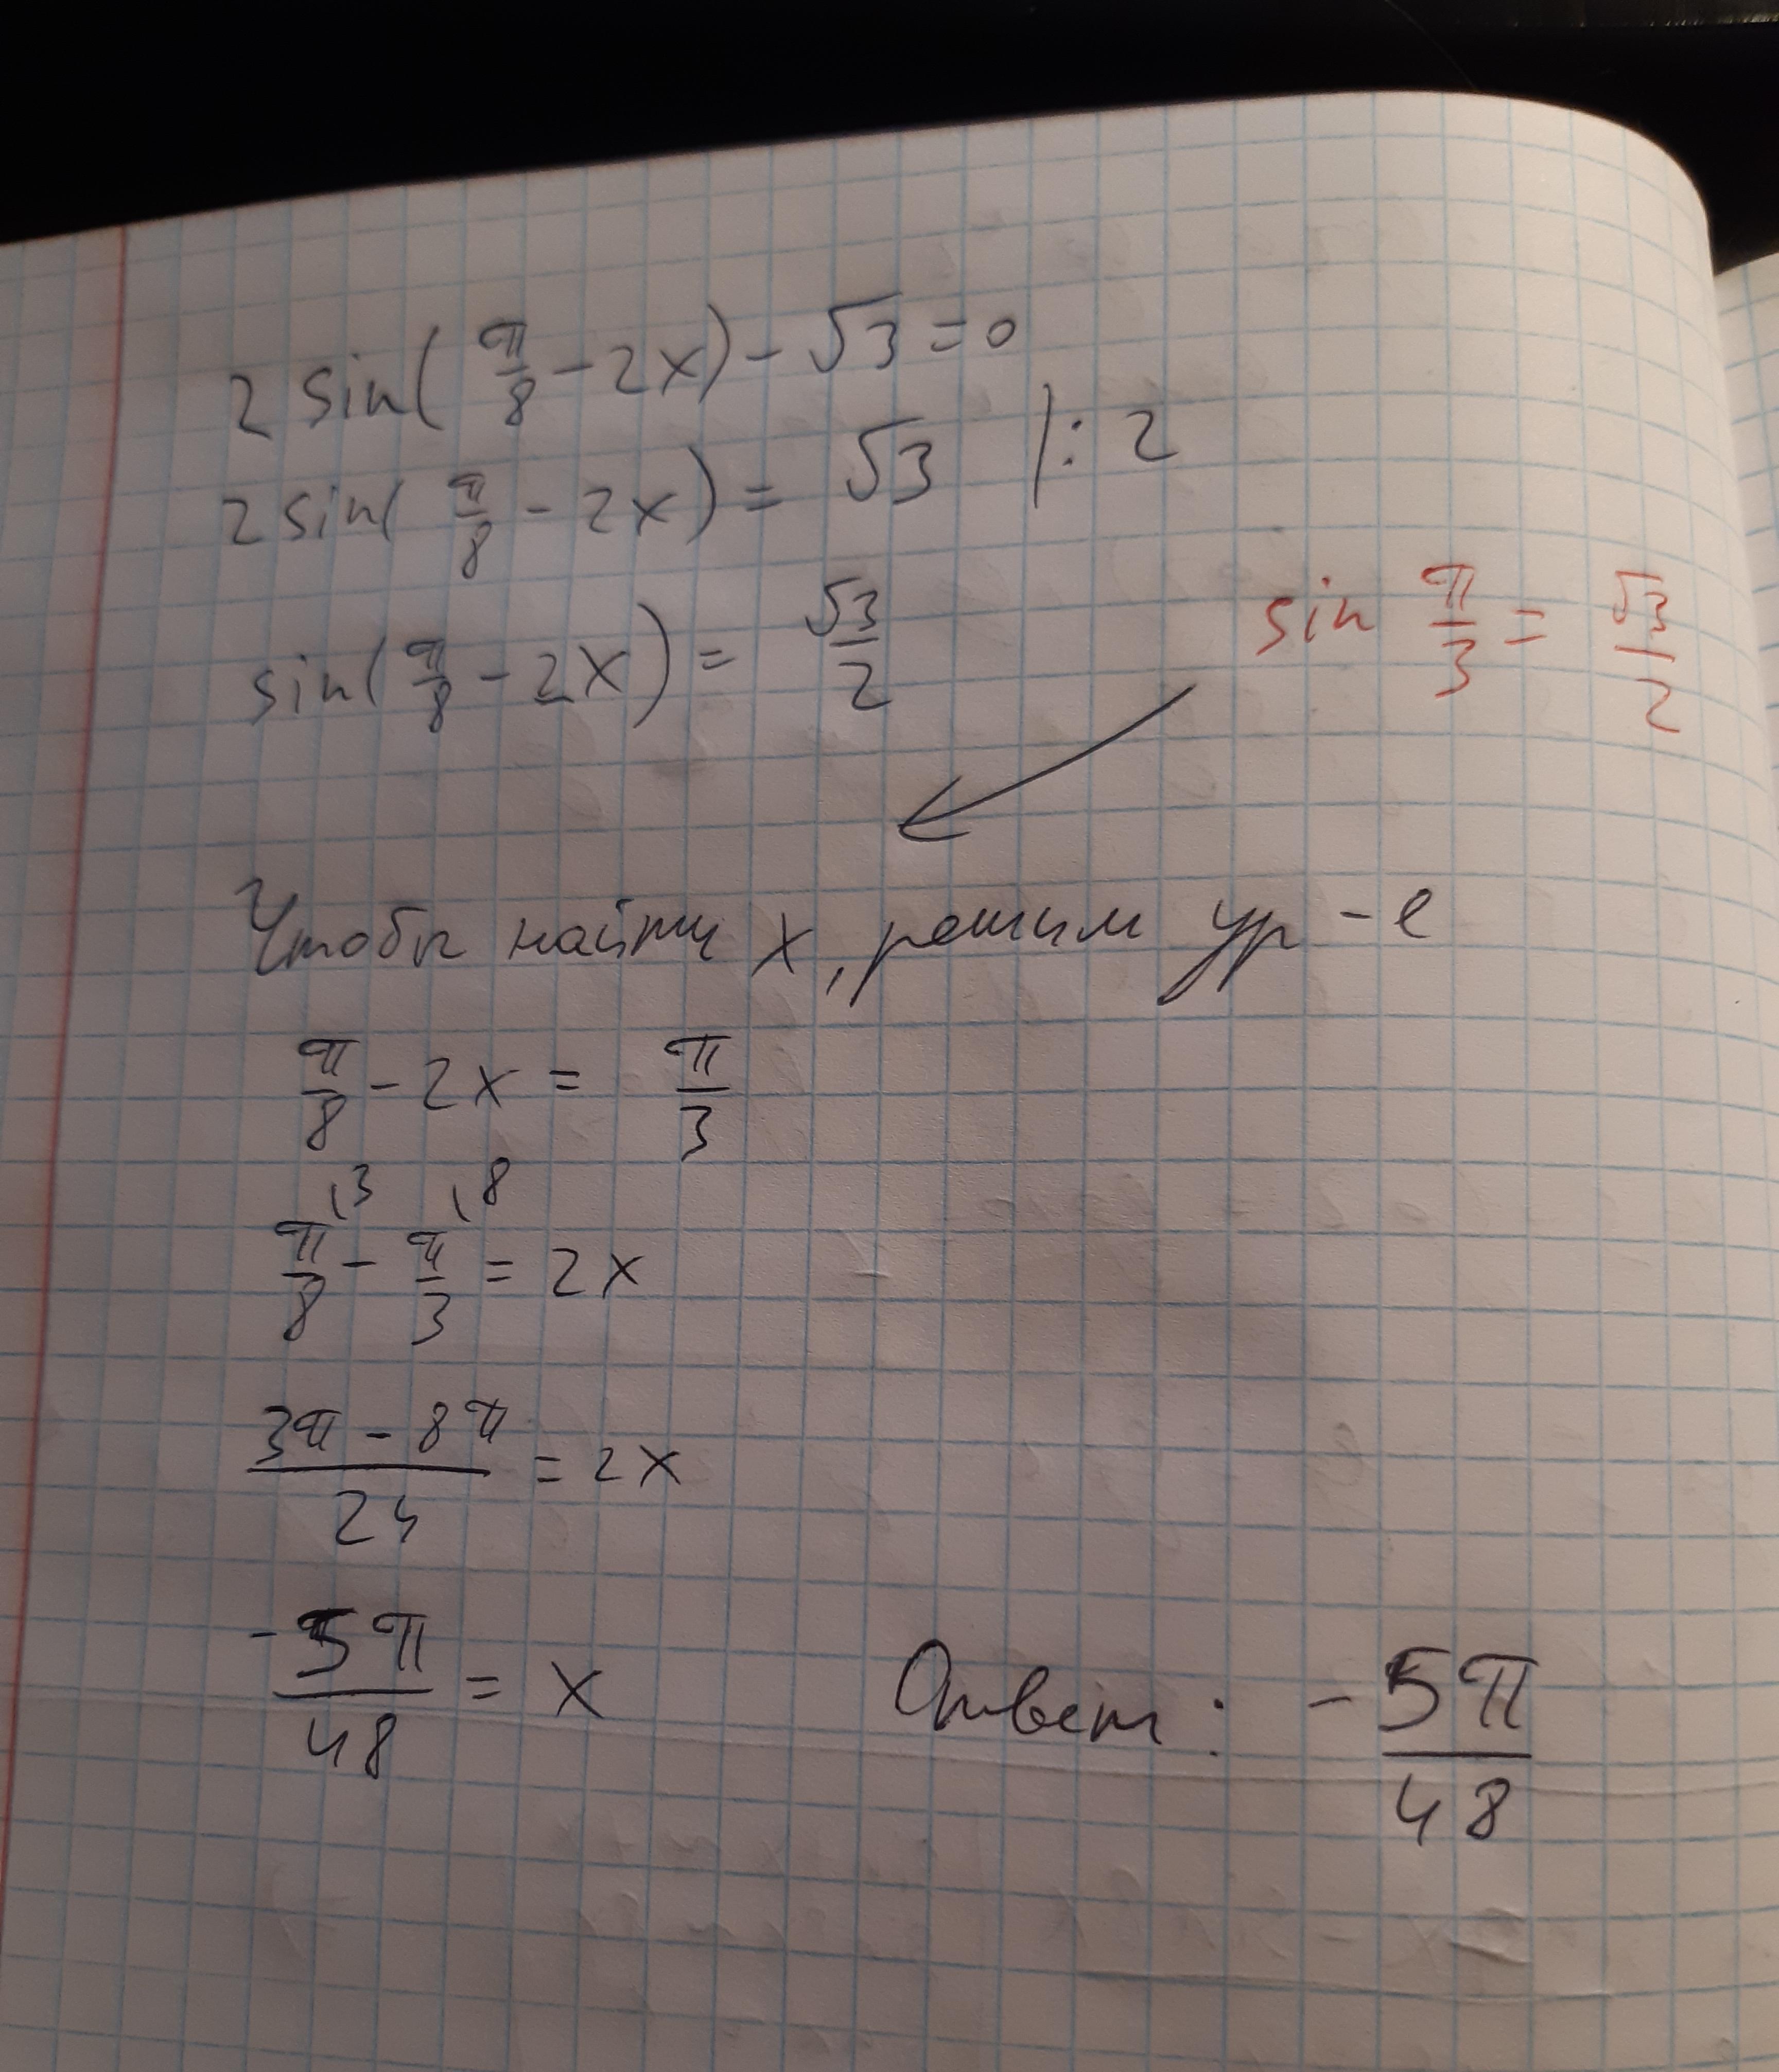 2 sin( π/8 - 2x) - √3 = 0
2 sin( π/8 - 2x) = √3 |: 2
sin( π/8 - 2x) = √3/2
sin π/3 = √3/2
Чтобы найти x, решим ур-е
π/8 - 2x = π/3
π/8 \3 - π/3 \8 = 2x
(3π - 8π)/24 = 2x
-5π/48 = x
Ответ: - 5π/48